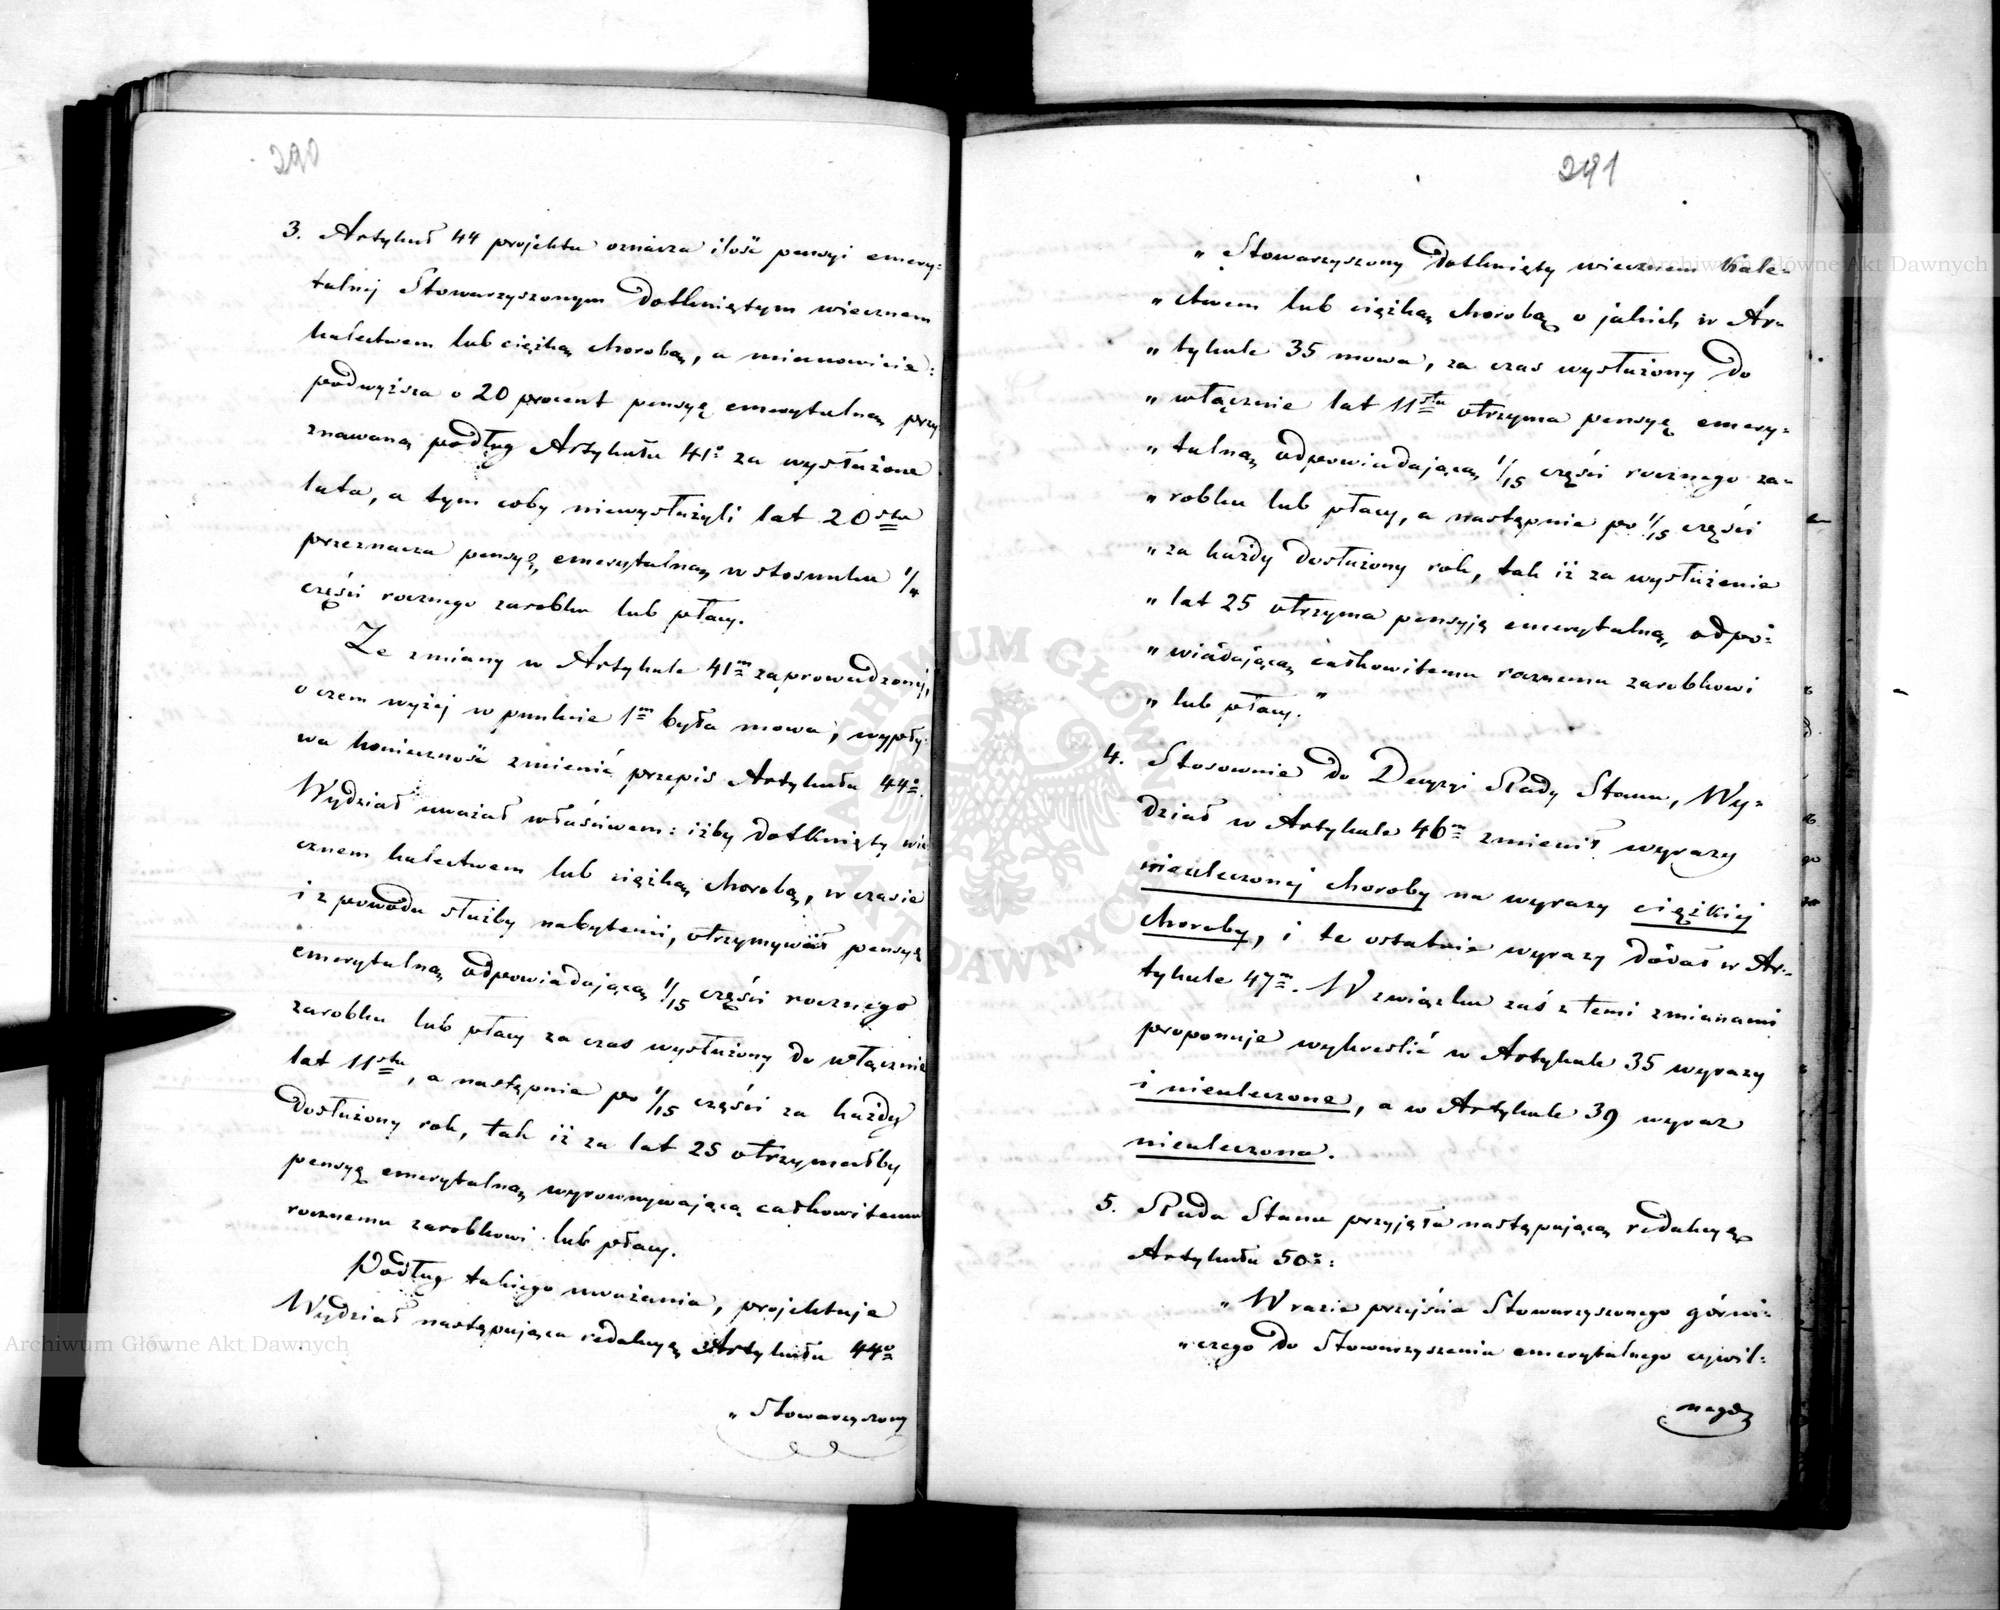 290
3. Artykuł 44 projektu oznacza ilość pensyi emery-
talnej Stowarzyszonym dotkniętym wiecznem
kalectwem lub ciężką chorobą, a mianowicie:
podwyższa o 20 procent pensyę emerytalną przy
znawaną podług Artykułu 41º za wysłużone
lata, a tym coby niewysłużyli lat 20stu
przeznacza pensyę emerytalną w stosunku 1/4
części rocznego zarobku lub płacy.
Ze zmiany w Artykule 41m zaprowadzonej,
o czem wyżej w punkcie 1m była mowa, wypły-
wa konieczność zmienić przepis Artykułu 44º.
Wydział uważał właściwem: iżby dotknięty wie
cznem kalectwem lub ciężką chorobą, w czasie
i z powodu służby nabytemi, otrzymywał pensyę
emerytalną odpowiadającą 11/15 części rocznego
zarobku lub płacy za czas wysłużony do włącznie
lat 11stu, a następnie po 1/15 części za każdy
dosłużony rok, tak iż za lat 25 otrzymałby
pensyę emerytalną wyrownywającą całkowitemu
rocznemu zarobkowi lub płacy.
Podług takiego uważania, projektuje
Wydział następująca redakcyą Artykułu 44º
„ Stowarzyszony
291
„ Stowarzyszony dotknięty wiecznem kale-
„ ctwem lub ciężką chorobą o jakich w Ar-
„ tykule 35 mowa, za czas wysłużony do
„ włącznie lat 11stu otrzyma pensyę emery-
„ talną odpowiadającą 11/15 części rocznego za-
„ robku lub płacy, a następnie po 1/15 części
„ za każdy dosłużony rok, tak iż za wysłużenie
„ lat 25 otrzyma pensyją emerytalną, odpo-
„ wiadającą całkowitemu rocznemu zarobkowi
„ lub płacy."
4. Stosownie do Decyzyi Rady Stanu, Wy-
dział w Artykule 46m zmienił wyrazy
nieuleczonej choroby na wyrazy ciężkiej
choroby, i te ostatnie wyrazy dodał w Ar-
tykule 47m. W związku zaś z temi zmianami
proponuje wykreslić w Artykule 35 wyrazy
i nieuleczone, a w Artykule 39 wyraz
nieuleczona.
5. Rada Stanu przyjęła następującą redakcyą
Artykułu 50º:
„ W razie przejścia Stowarzyszonego górni-
„ czego do Stowarzyszenia emerytalnego cywil-
nego
Archiwum Główne Akt Dawnych
Archiwum Główne Akt Dawnych
ARCHIWUM GŁÓWNE
AKT DAWNYCH